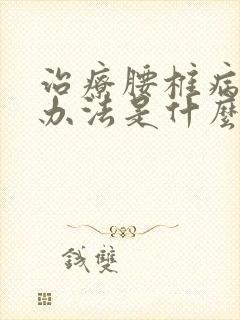 治療腰椎病
办法是什麼
錢雙